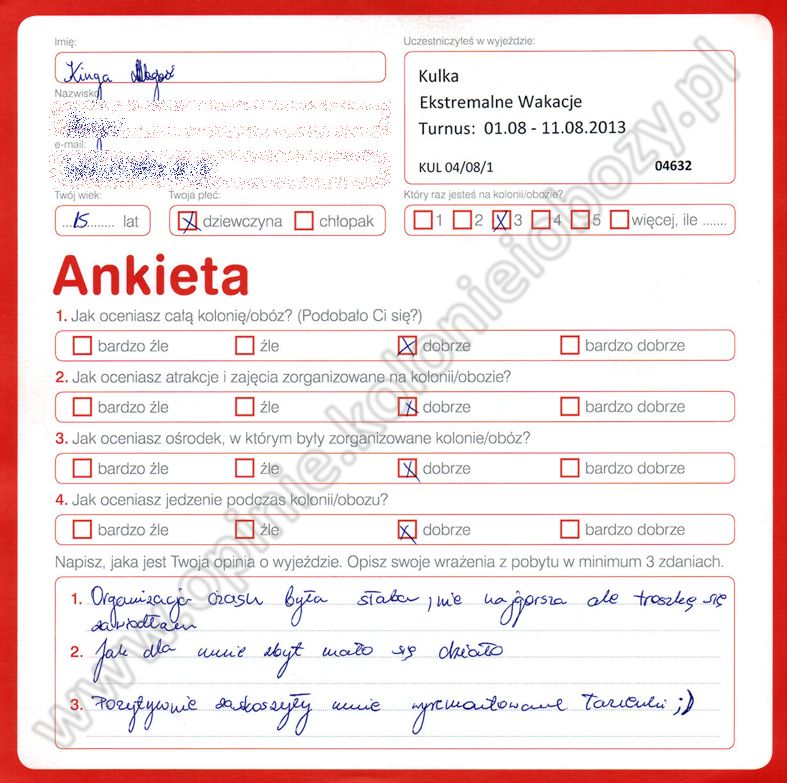 Imię:
Kinga
Nazwisko
e-mail:
Twój wiek:
15 lat
Twoja płeć:
dziewczyna chłopak
Uczestniczyłeś w wyjeździe:
Kulka
Ekstremalne Wakacje
Turnus: 01.08 - 11.08.2013
KUL 04/08/1 04632
Który raz jesteś na kolonii/obozie?
1 2 3 4 5 więcej, ile .......
Ankieta
1. Jak oceniasz całą kolonię/obóz? (Podobało Ci się?)
bardzo źle źle dobrze bardzo dobrze
2. Jak oceniasz atrakcje i zajęcia zorganizowane na kolonii/obozie?
bardzo źle źle dobrze bardzo dobrze
3. Jak oceniasz ośrodek, w którym były zorganizowane kolonie/obóz?
bardzo źle źle dobrze bardzo dobrze
4. Jak oceniasz jedzenie podczas kolonii/obozu?
bardzo źle źle dobrze bardzo dobrze
Napisz, jaka jest Twoja opinia o wyjeździe. Opisz swoje wrażenia z pobytu w minimum 3 zdaniach.
1. Organizacja czasu była słaba, nie najgorsza ale troszkę się
zawiodłam
2. Jak dla mnie zbyt mało się działo
3. Pozytywnie zaskoszyły mnie wyremontowane łazienki ;)
www.opinie.kolonieiobozy.pl